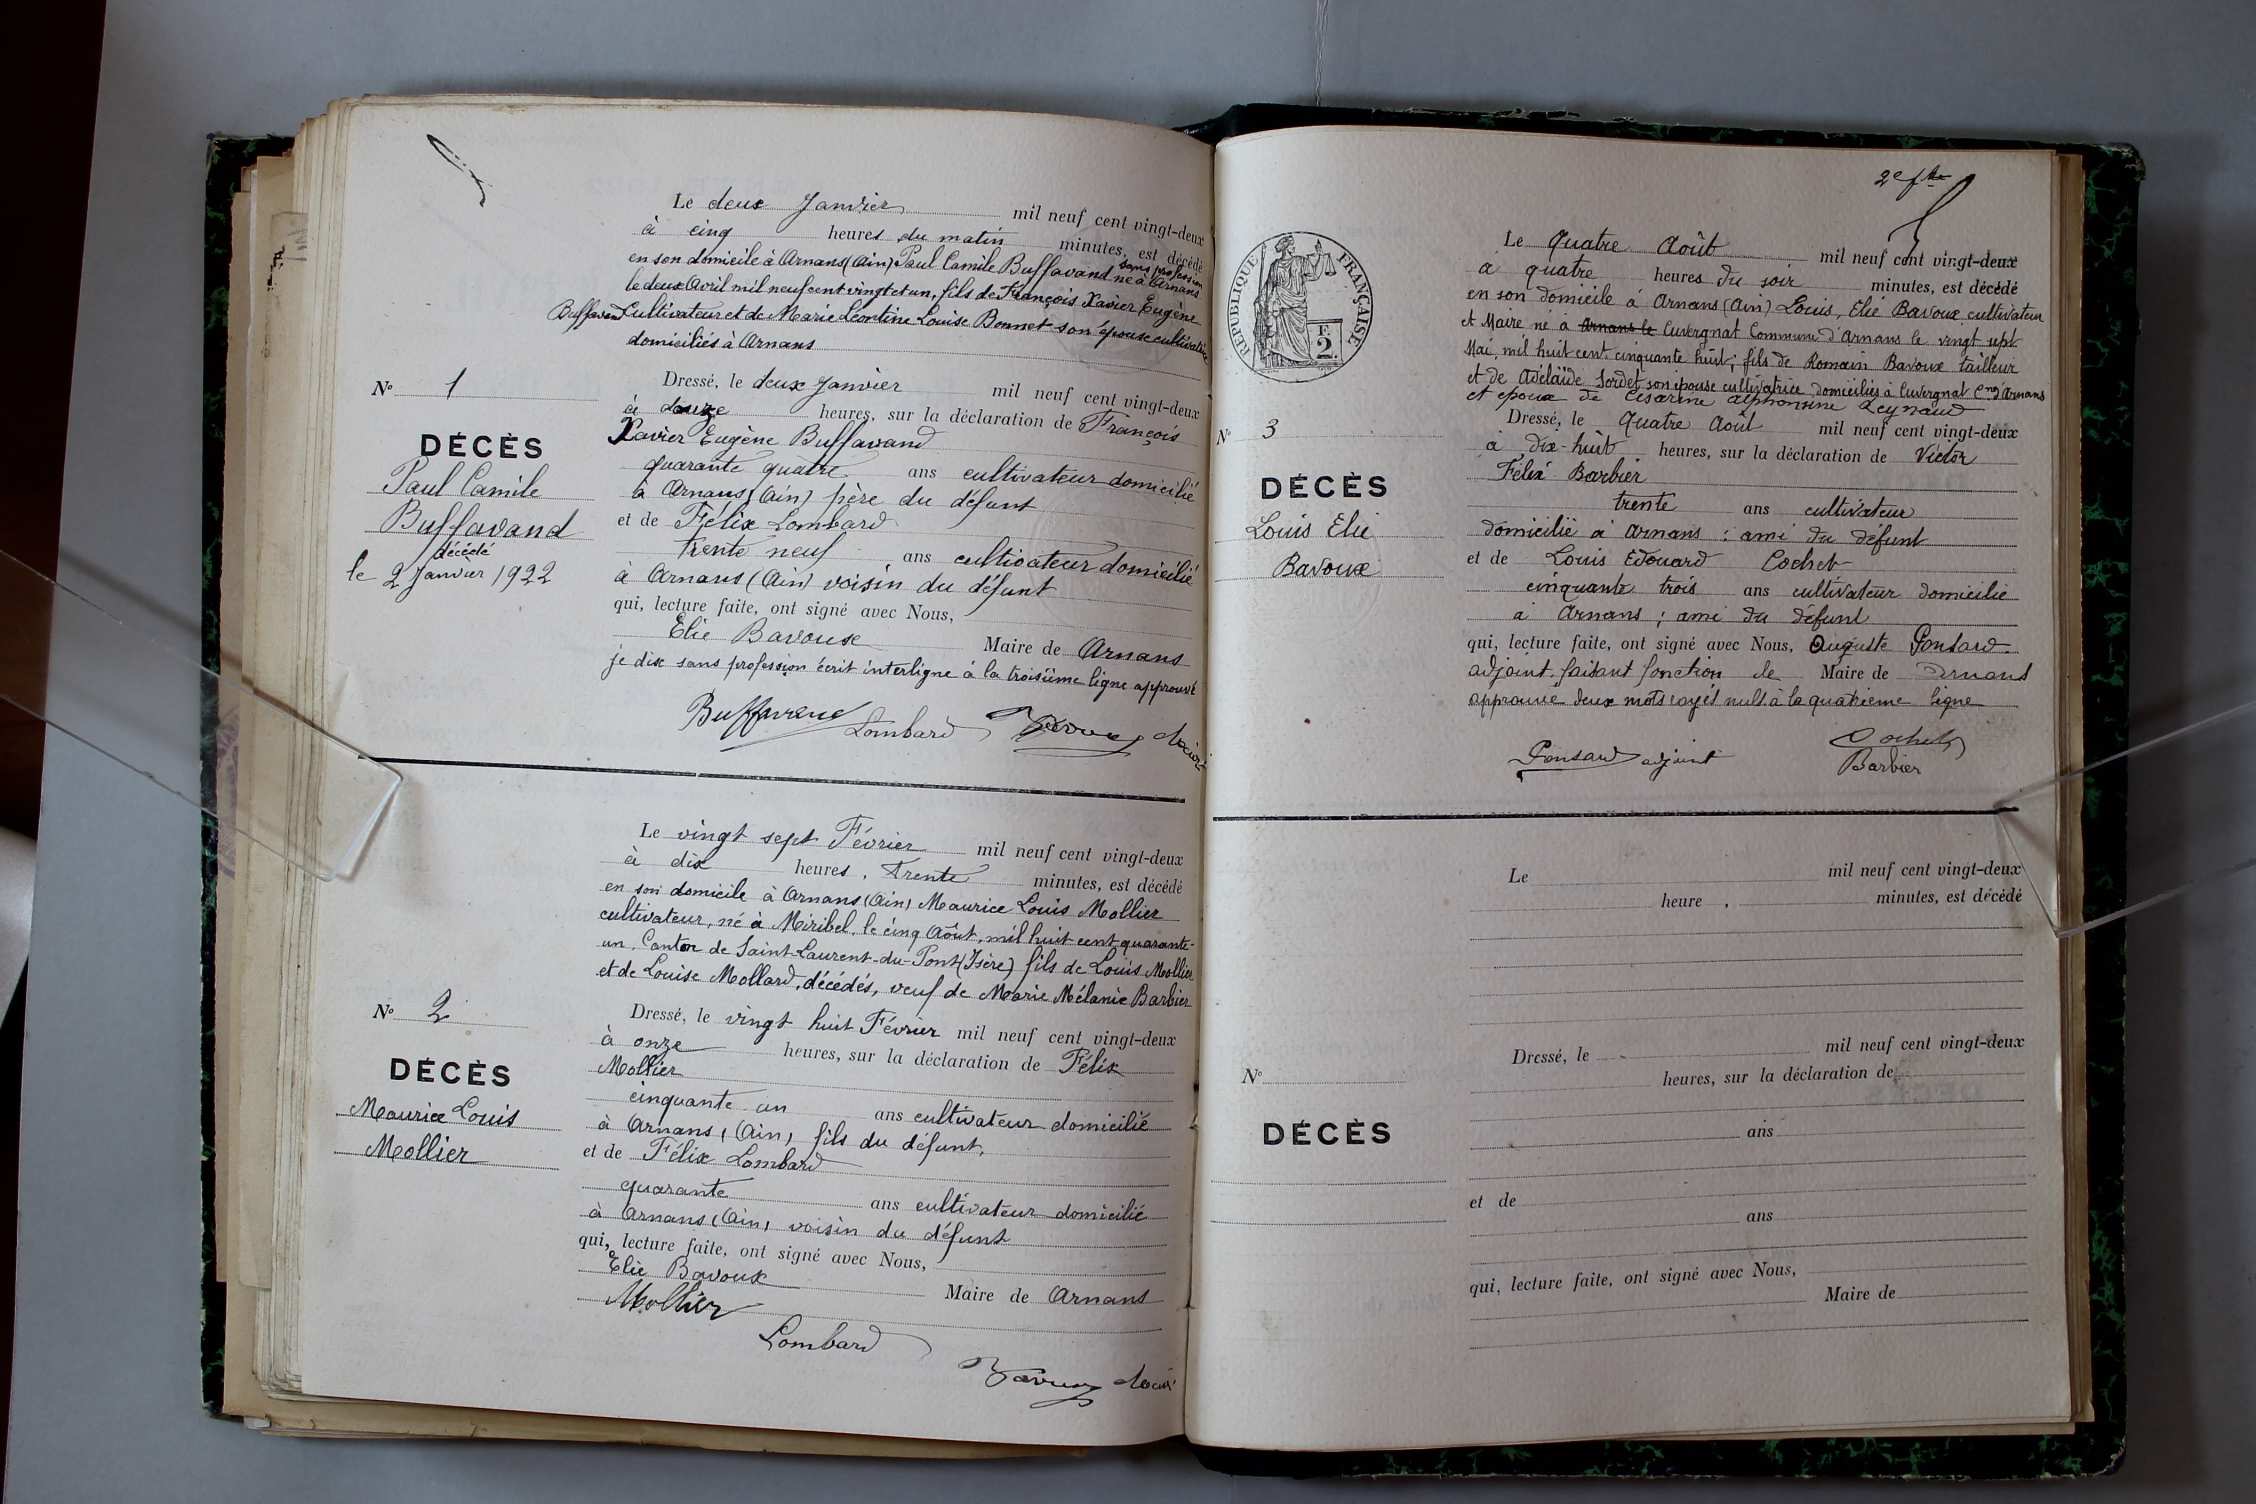 Le deux Janvier mil neuf cent vingt-deux
à cinq heures du matin minutes, est décédé
en son domicile à Arnans (Ain) Paul Camile Buffavand sans profession né à Arnans
le deux Avril mil neuf cent vingt et un, fils de François Xavier Eugène
Buffavand Cultivateur et de Marie Léontine Louise Bonnet son épouse cultivatrice
domiciliés à Arnans
N° 1
DÉCÈS
Paul Camile
Buffavand
décédé
le 2 Janvier 1922
Dressé, le deux Janvier mil neuf cent vingt-deux
à douze heures, sur la déclaration de François
Xavier Eugène Buffavand
quarante quatre ans cultivateur domicilié
à Arnans (Ain) père du défunt
et de Félix Lombard
trente neuf ans cultivateur domicilié
à Arnans (Ain) voisin du défunt
qui, lecture faite, ont signé avec Nous,
Elie Bavoux Maire de Arnans
je dix sans profession écrit interligne à la troisième ligne approuvé
Buffavand Lombard Bavoux Maire
Le vingt sept Février mil neuf cent vingt-deux
à dix heures, trente minutes, est décédé
en son domicile à Arnans (Ain) Maurice Louis Mollier
cultivateur, né à Miribel, le cinq Août, mil huit cent quarante-
un, Canton de Saint-Laurent-du-Pont (Isère) fils de Louis Mollier
et de Louise Mollard, décédés, veuf de Marie Mélanie Barbier
N° 2
DÉCÈS
Maurice Louis
Mollier
Dressé, le vingt huit Février mil neuf cent vingt-deux
à onze heures, sur la déclaration de Félix
Mollier
cinquante un ans cultivateur domicilié
à Arnans, (Ain) fils du défunt,
et de Félix Lombard
quarante ans cultivateur domicilié
à Arnans (Ain) voisin du défunt
qui, lecture faite, ont signé avec Nous,
Elie Bavoux Maire de Arnans
Mollier
Lombard
Bavoux Maire
2e fte
RÉPUBLIQUE FRANÇAISE
F.
2.
Le Quatre Août mil neuf cent vingt-deux
à quatre heures du soir minutes, est décédé
en son domicile à Arnans (Ain) Louis, Elie Bavoux cultivateur
et Maire né à Arnans le Cuvergnat Commune d'Arnans le vingt sept
Mai, mil huit cent cinquante huit; fils de Romain Bavoux tailleur
et de Adélaïde Sordet son épouse cultivatrice domiciliés à Cuvergnat Cne d'Arnans
et époux de Césarine Alphonsine Reynaud
N° 3
DÉCÈS
Louis Elie
Bavoux
Dressé, le Quatre Août mil neuf cent vingt-deux
à dix-huit heures, sur la déclaration de Victor
Félix Barbier
trente ans cultivateur
domicilié à Arnans; ami du défunt
et de Louis Edouard Cochet
cinquante trois ans cultivateur domicilié
à Arnans; ami du défunt
qui, lecture faite, ont signé avec Nous, Auguste Ponsard
adjoint faisant fonction de Maire de Arnans
approuvé deux mots rayés nuls à la quatrième ligne
Cochet
Ponsard adjoint Barbier
Le mil neuf cent vingt-deux
heure , minutes, est décédé
N°
DÉCÈS
Dressé, le mil neuf cent vingt-deux
heures, sur la déclaration de
ans
et de
ans
qui, lecture faite, ont signé avec Nous,
Maire de